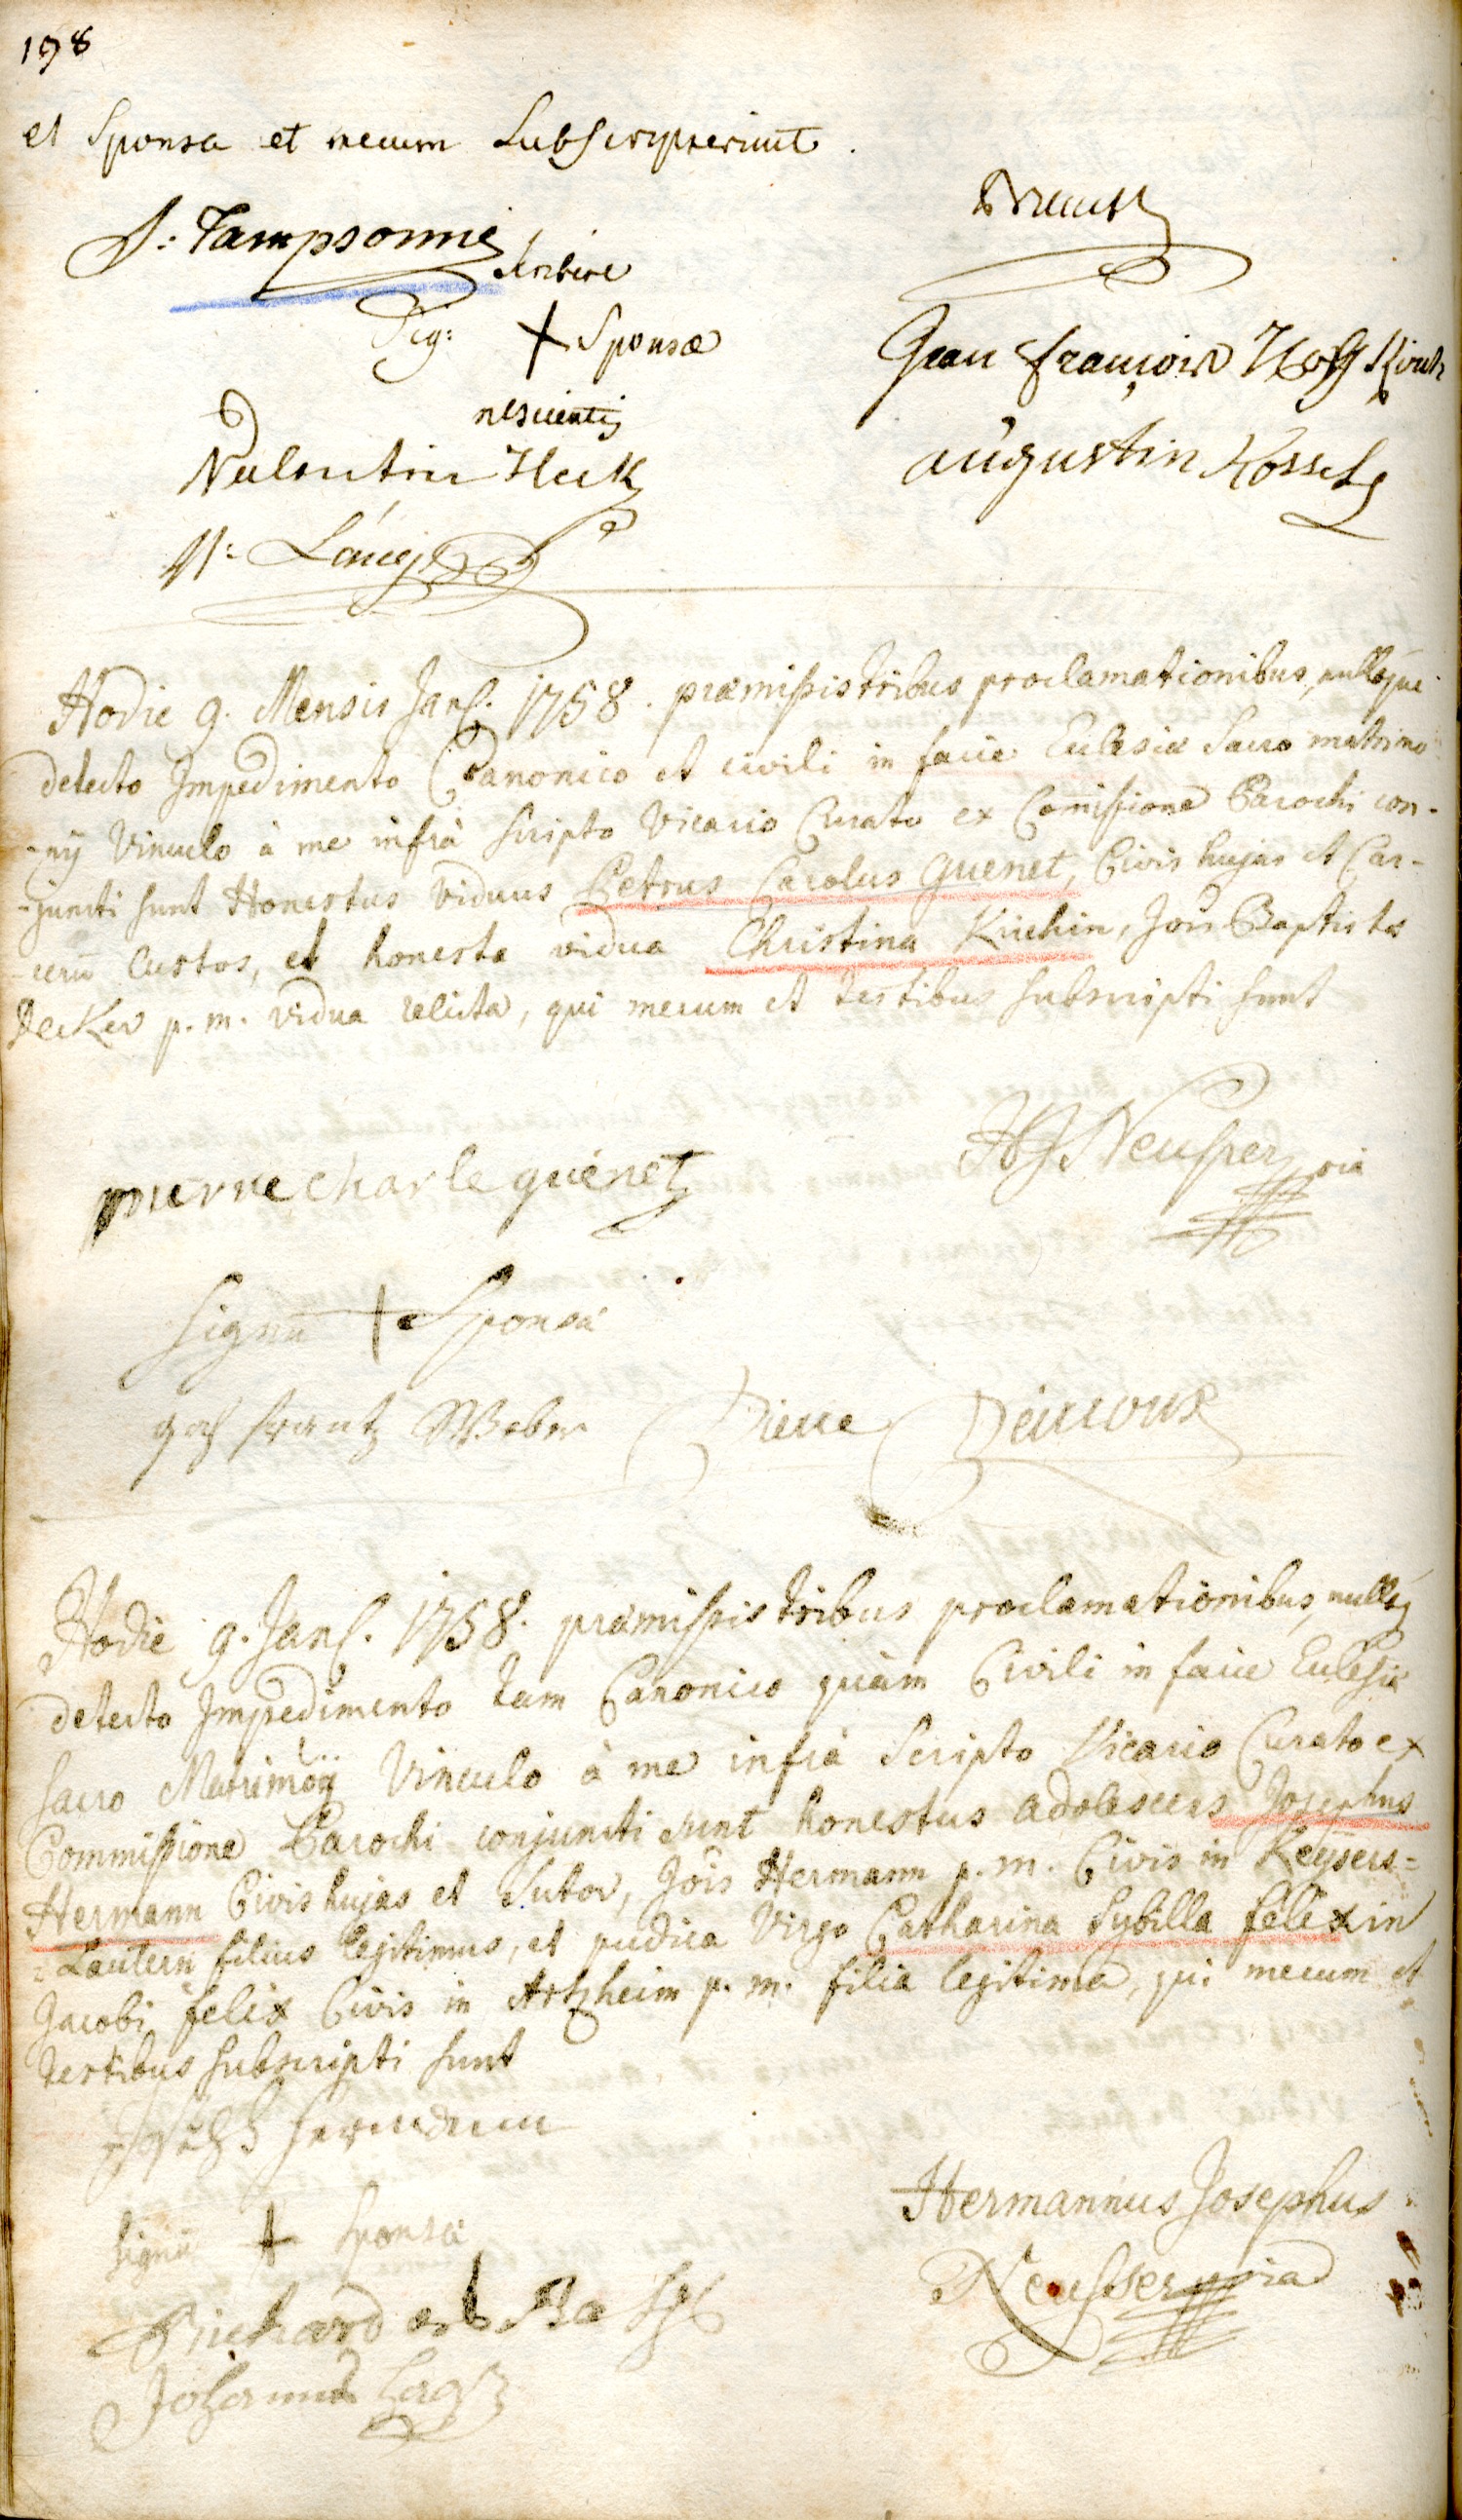 198
et Sponsa et mecum Subscripserunt.
S: Tampsonne
scribere
Sig: + Sponsæ
nescientis
Jean françois
augustin Kossel
Valentin Heck
Hodie 9. Mensis Janʳ. 1758. præmissis tribus proclamationibus, nulloque
detecto Impedimento Canonico et civili in facie Eclesiæ Sacro matrimo-
-nÿ Vinculo à me infrà scripto Vicario Curato ex Comissione Parochi con-
-juncti sunt Honestus Viduus Petrus Carolus Guenet, Civis hujas et Car-
-cerū Custos, et honesta vidua Christina Kuchin, Jois Baptistæ
Decker p. m. vidua relicta, qui mecum et testibus subscripti sunt
pierre charle guenet
HJ Neusser
Signū + Sponsæ
frantz Weber Pierre
Hodie 9. Janʳ. 1758. præmissis tribus proclamationibus, nulloq
detecto Impedimento tam Canonico quàm Civili in facie Eclesiæ
sacro Matrimoÿ Vinculo à me infrà Scripto Vicario Curato ex
Commissione Parochi conjuncti sunt honestus adolescens Josephus
Hermann Civis hujas et Sutor, Jois Hermann p. m. Civis in Keÿsers=
=Lautern filius legitimus, et pudica Virgo Catharina Sybilla felixin
Jacobi felix Civis in Artzheim p. m. filia legitima, qui mecum et
testibus subscripti sunt
Signū + Sponsæ
Hermannus Josephus
Neusser
Richard
Johannes